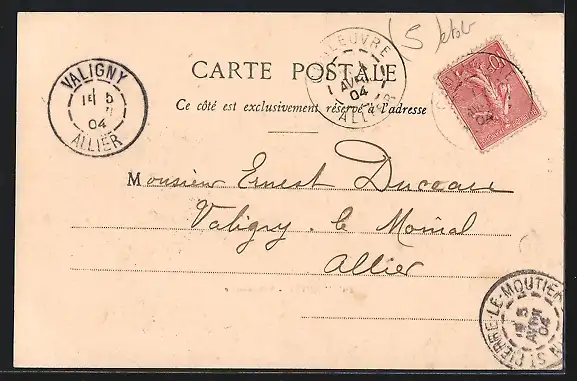 5
CARTE POSTALE
Ce côté est exclusivement réservé à l'adresse
VALIGNY
5
04
ALLIER
AVRIL
04
ALLIER
10
04
Monsieur Ernest
Valigny. le Monial
Allier
ST PIERRE-LE-MOUTIER
5
AVRIL
04